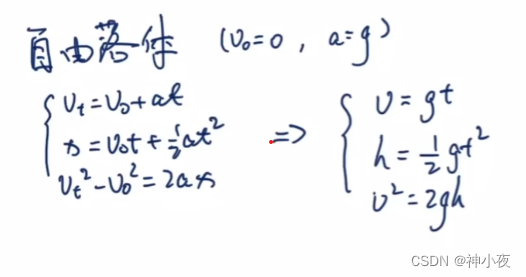 自由落体 (v₀=0, a=g)
vₜ=v₀+at
x=v₀t+½at² => 
vₜ²-v₀²=2ax
v=gt
h=½gt²
v²=2gh
CSDN @神小夜